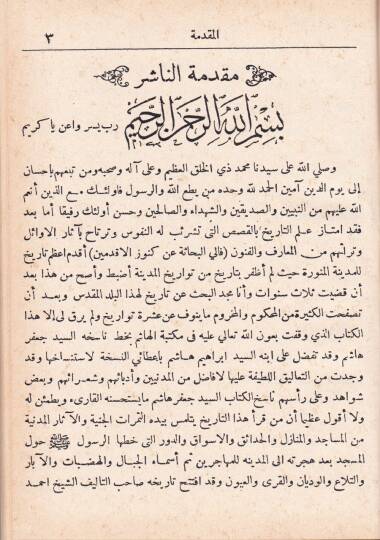 المقدمة ٣
مقدمة الناشر
بسم الله الرحمن الرحيم رب يسر واعن يا كريم
وصلى الله على سيدنا محمد ذي الخلق العظيم وعلى آله وصحبه ومن تبعهم باحسان
إلى يوم الدين آمين الحمد لله وحده من يطع الله والرسول فاولئك مع الذين أنعم
الله عليهم من النبيين والصديقين والشهداء والصالحين وحسن أولئك رفيقا أما بعد
فقد امتاز علم التاريخ بالقصص التي تشرئب له النفوس وترتاح بآثار الاوائل
وتراثهم من المعارف والفنون (فالى البحاثة عن كنوز الاقدمين) أقدم اعظم تاريخ
للمدينة المنورة حيث لم أظفر بتاريخ من تواريخ المدينة أضبط وأصح من هذا بعد
أن قضيت ثلاث سنوات وأنا مجد البحث عن تاريخ لهذا البلد المقدس وبعد أن
تصفحت الكثيرة من المحكوم والمخروم ما ينوف عن عشرة تواريخ ولم يرق لى إلا هذا
الكتاب الذي وقفت بعون الله تعالى عليه فى مكتبة الهاشم بخط ناسخه السيد جعفر
هاشم وقد تفضل على ابنه السيد ابراهيم هاشم باعطائى النسخة لاستنساخها وقد
وجدت من التعاليق اللطيفة عليها لافاضل من المدنيين وأدبائهم وشعرائهم وبعض
شواهد وعلى رأسهم ناسخ الكتاب السيد جعفر هاشم مايستحسنه القارىء ويطمئن له
ولا أقول عظيما أن من قرأ هذا التاريخ يتلمس بيده الثمرات الجنية والآثار المدنية
من المساجد والمنازل والحدائق والاسواق والدور التى خطها الرسول ﷺ حول
المسجد بعد هجرته الى المدينه للمهاجرين ثم أسماء الجبال والهضبات والآبار
والتلاع والوديان والقرى والعيون وقد افتتح تاريخه صاحب التاليف الشيخ احمد